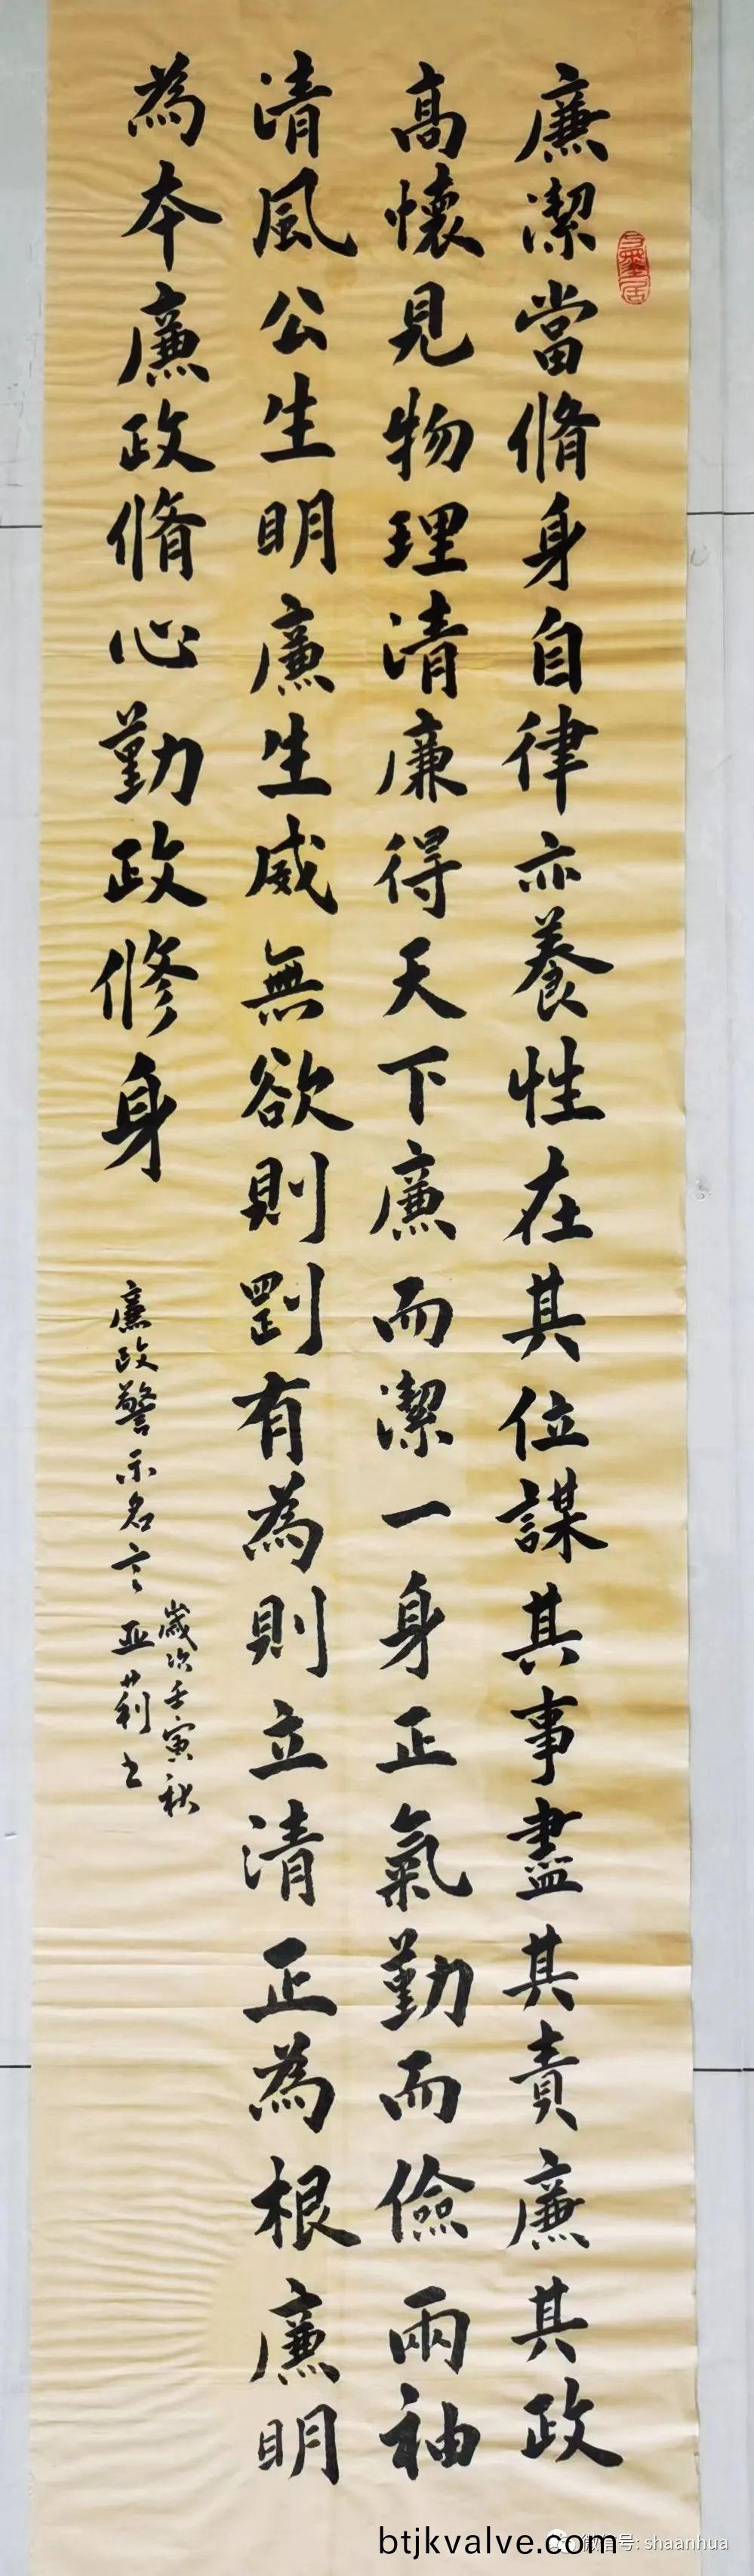 廉潔當脩身自律亦養性在其位謀其事盡其責廉其政
高懷見物理清廉得天下廉而潔一身正氣勤而儉兩袖
清風公生明廉生威無欲則剛有為則立清正為根廉明
為本廉政脩心勤政修身
廉政警示名言
歲次壬寅秋
亚莉书
btjkvalve.com
微信号: shaanhua